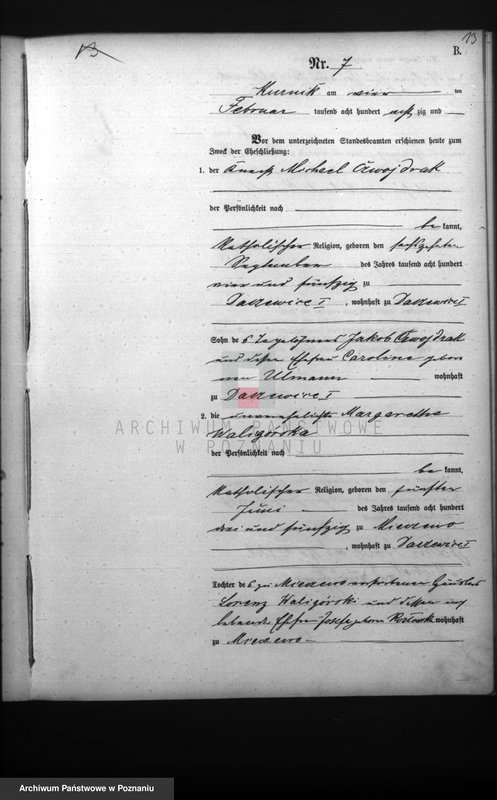 13
B.
Nr. 7
Kurnik am vier ten
Februar tausend acht hundert acht zig und
Vor dem unterzeichneten Standesbeamten erschienen heute zum
Zweck der Eheschließung:
1. der Knecht Michael Cwojdrak
der Persönlichkeit nach
be kannt,
katholischer Religion, geboren den
September des Jahres tausend acht hundert
vier und fünfzig zu
Daszewice I, wohnhaft zu Daszewice I
Sohn des Tagelöhners Jakob Cwojdrak
und dessen Ehefrau Caroline gebor
nen Ulmann wohnhaft
zu Daszewice I
2. die unverehelichte Margaretha
Waligórska
der Persönlichkeit nach
be kannt,
katholischer Religion, geboren den fünften
Juni des Jahres tausend acht hundert
drei und fünfzig zu Mieczewo
, wohnhaft zu Daszewice I
Tochter des zu Mieczewo verstorbenen Häuslers
Lorenz Waligórski und dessen noch
lebende Ehefrau Josepha geboren wohnhaft
zu Mieczewo
ARCHIWUM PAŃSTWOWE
W POZNANIU
Archiwum Państwowe w Poznaniu